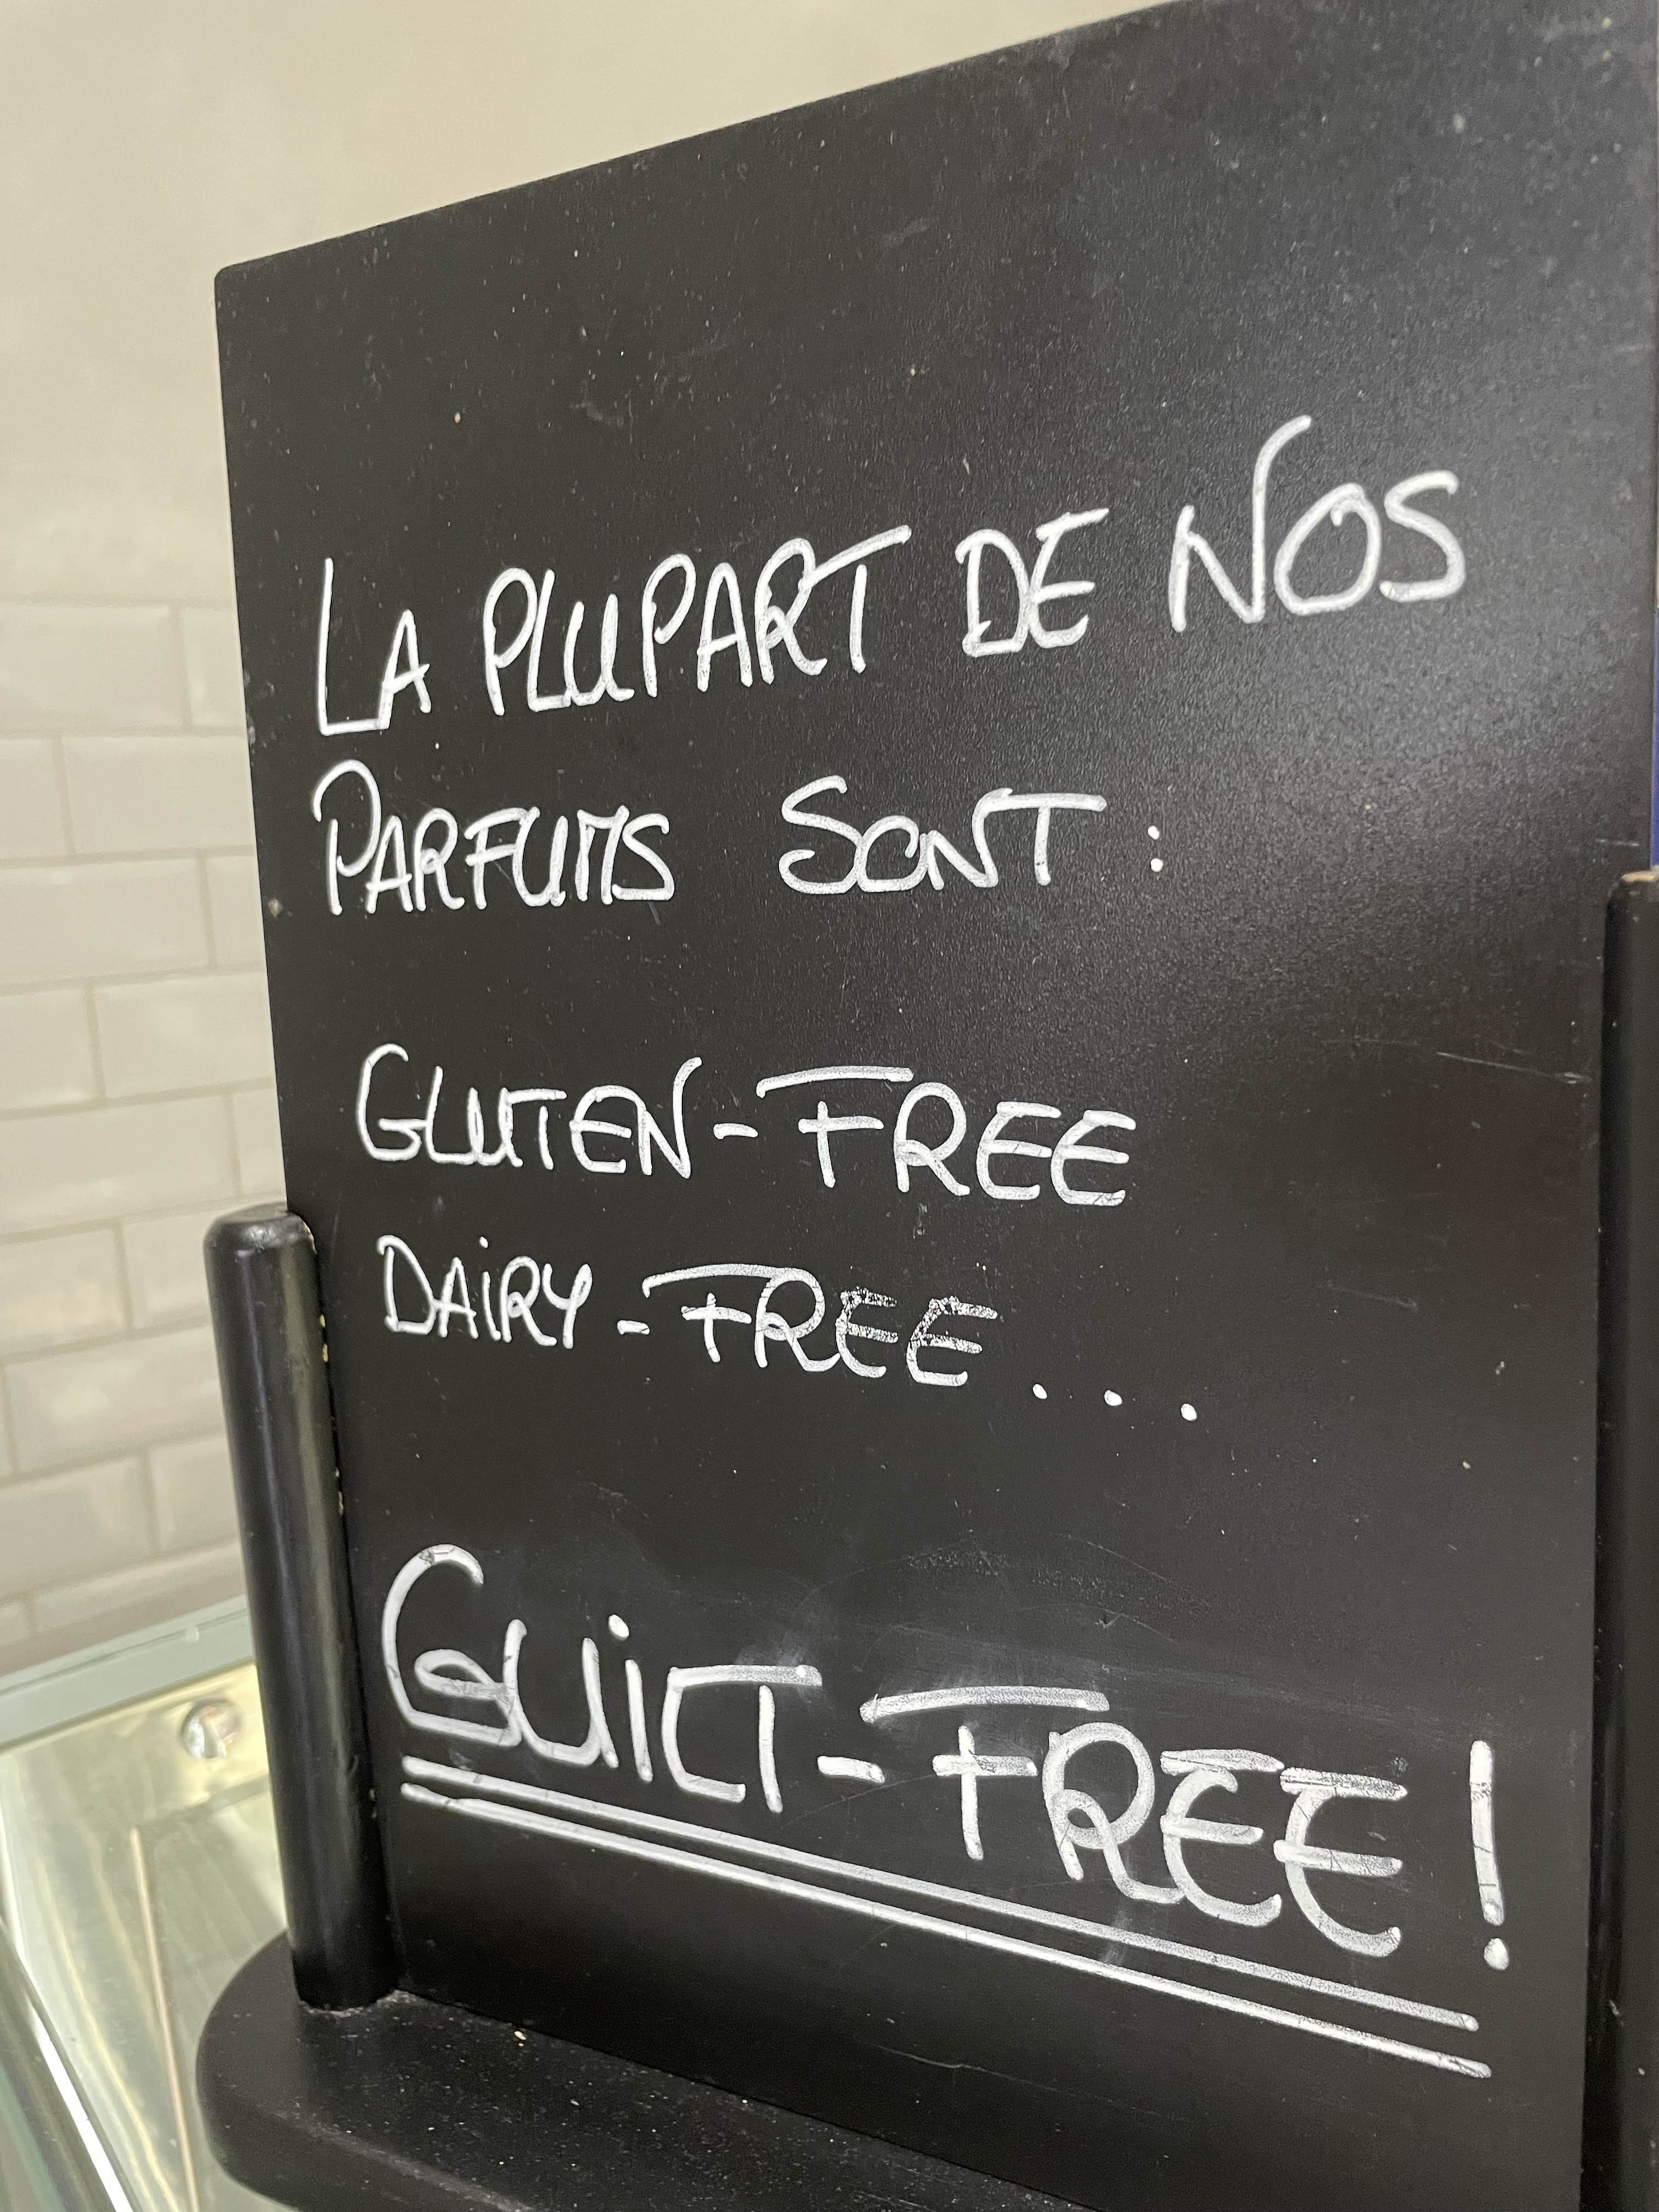 LA PLUPART DE NOS
PARFUMS SONT :
GLUTEN-FREE
DAIRY-FREE...
GUILT-FREE!